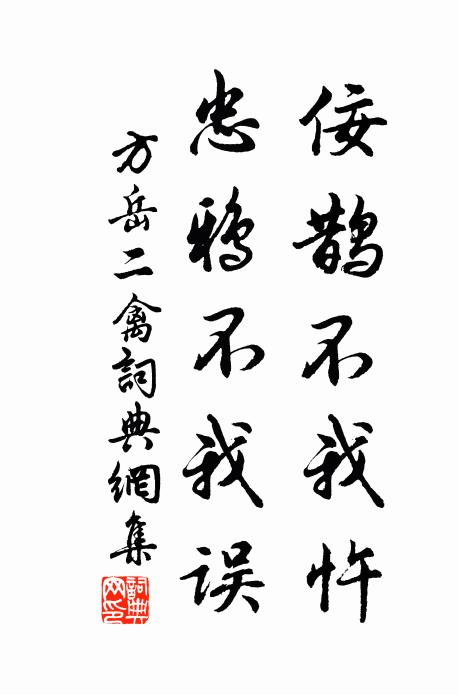 佞鹊不我忤
忠鸦不我误
方岳二禽詞典網集
詞典网印